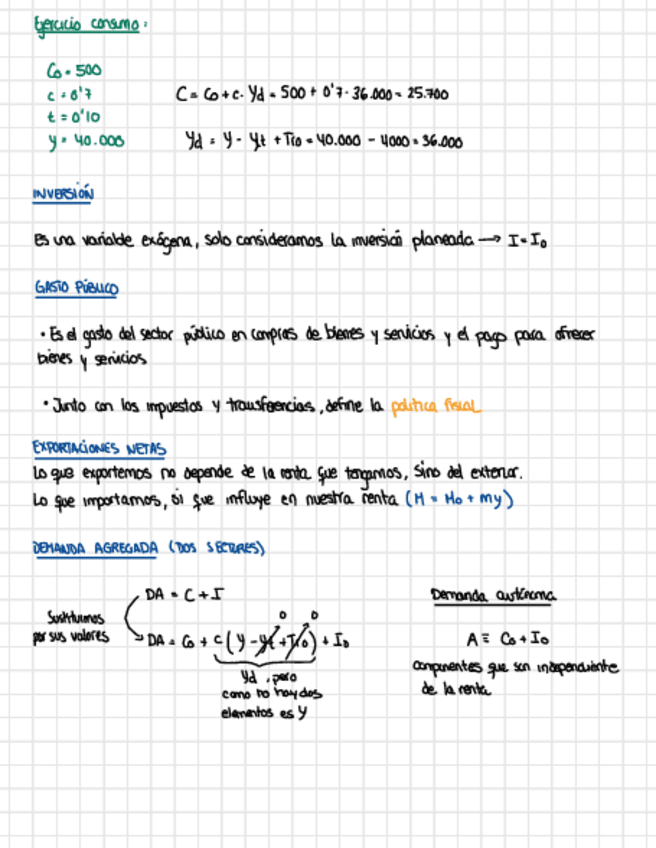 Ejercicio consumo:
Co = 500
c = 0'7
t = 0'10
y = 40.000
C = Co + c · Yd = 500 + 0'7 · 36.000 = 25.700
Yd = Y - Yt + Tro = 40.000 - 4000 = 36.000
INVERSIÓN
Es una variable exógena, solo consideramos la inversión planeada → I = Io
GASTO PÚBLICO
· Es el gasto del sector público en compras de bienes y servicios y el pago para ofrecer
bienes y servicios
· Junto con los impuestos y transferencias, define la política fiscal
EXPORTACIONES NETAS
Lo que exportemos no depende de la renta que tengamos, sino del exterior.
Lo que importamos, si que influye en nuestra renta (M = Mo + my)
DEMANDA AGREGADA (DOS SECTORES)
DA = C + I
Sustituimos
por sus valores
0 0
DA = Co + c (y - yt + Tro) + Io
Yd, pero
como no hay dos
elementos es Y
Demanda autónoma
A ≡ Co + Io
componentes que son independiente
de la renta